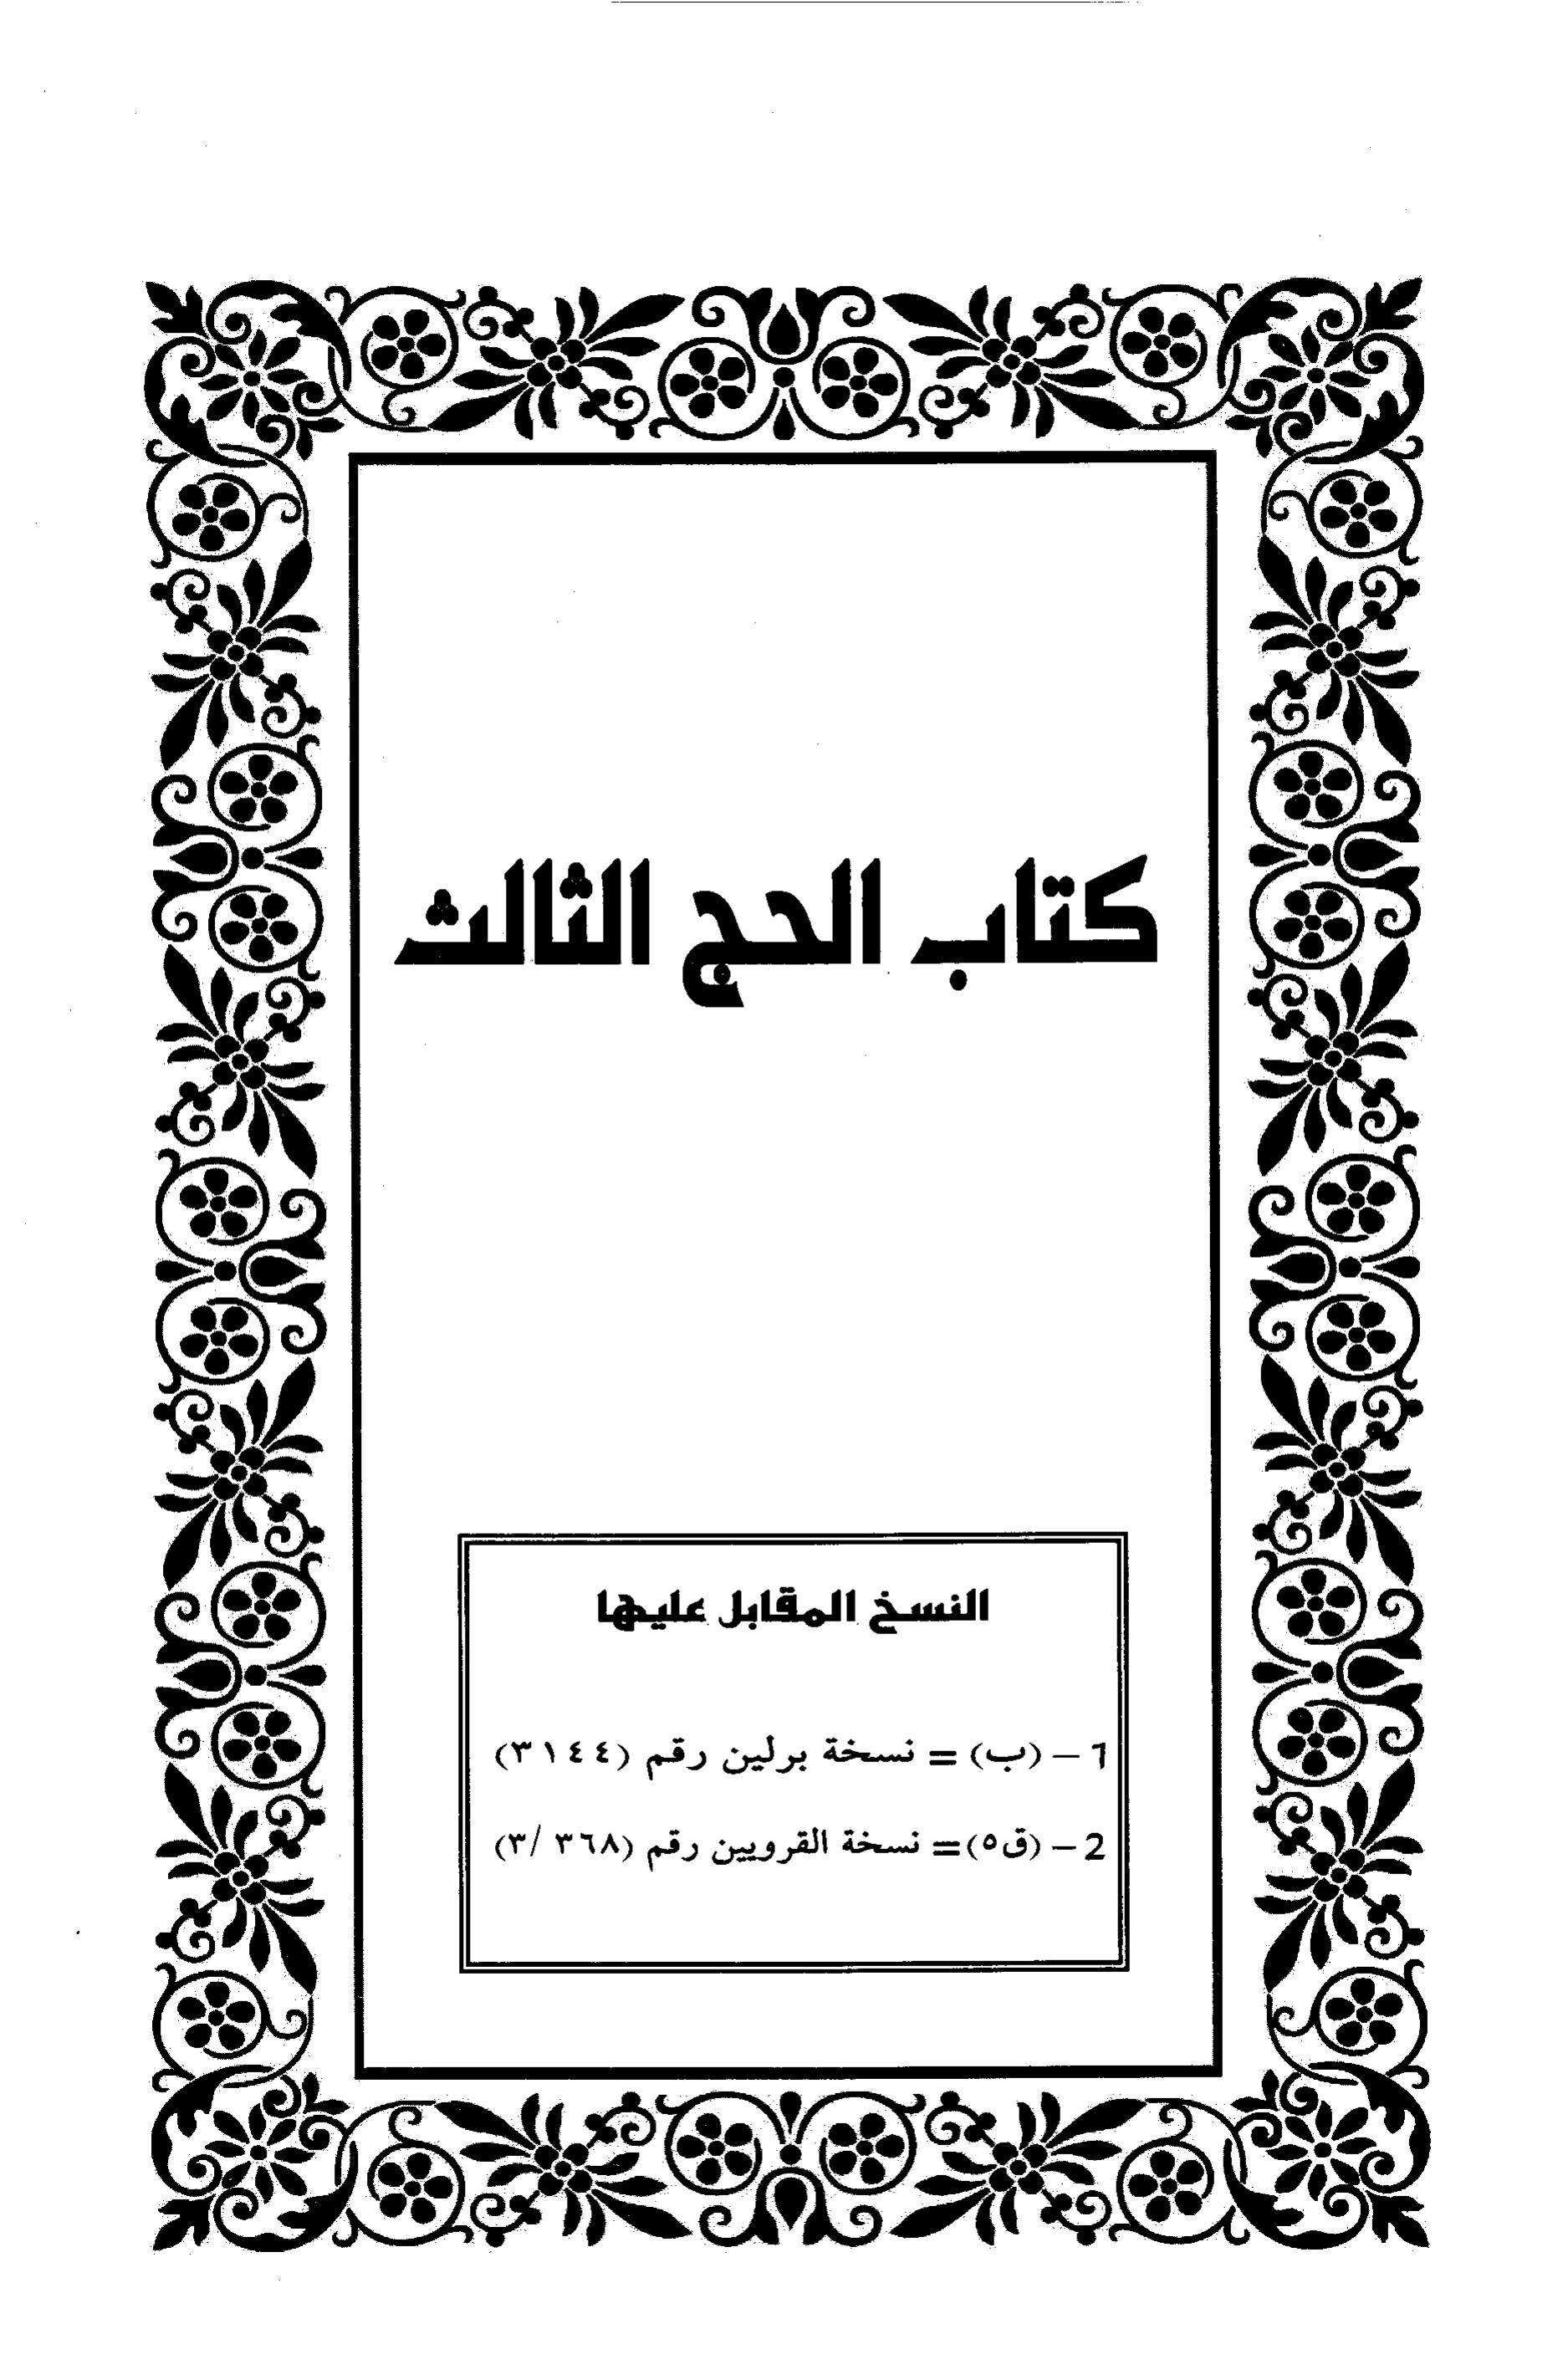 كتاب الحج الثالث
النسخ المقابل عليها
1 – (ب) = نسخة برلين رقم (٣١٤٤)
2 – (ق٥) = نسخة القرويين رقم (٣٦٨ /٣)